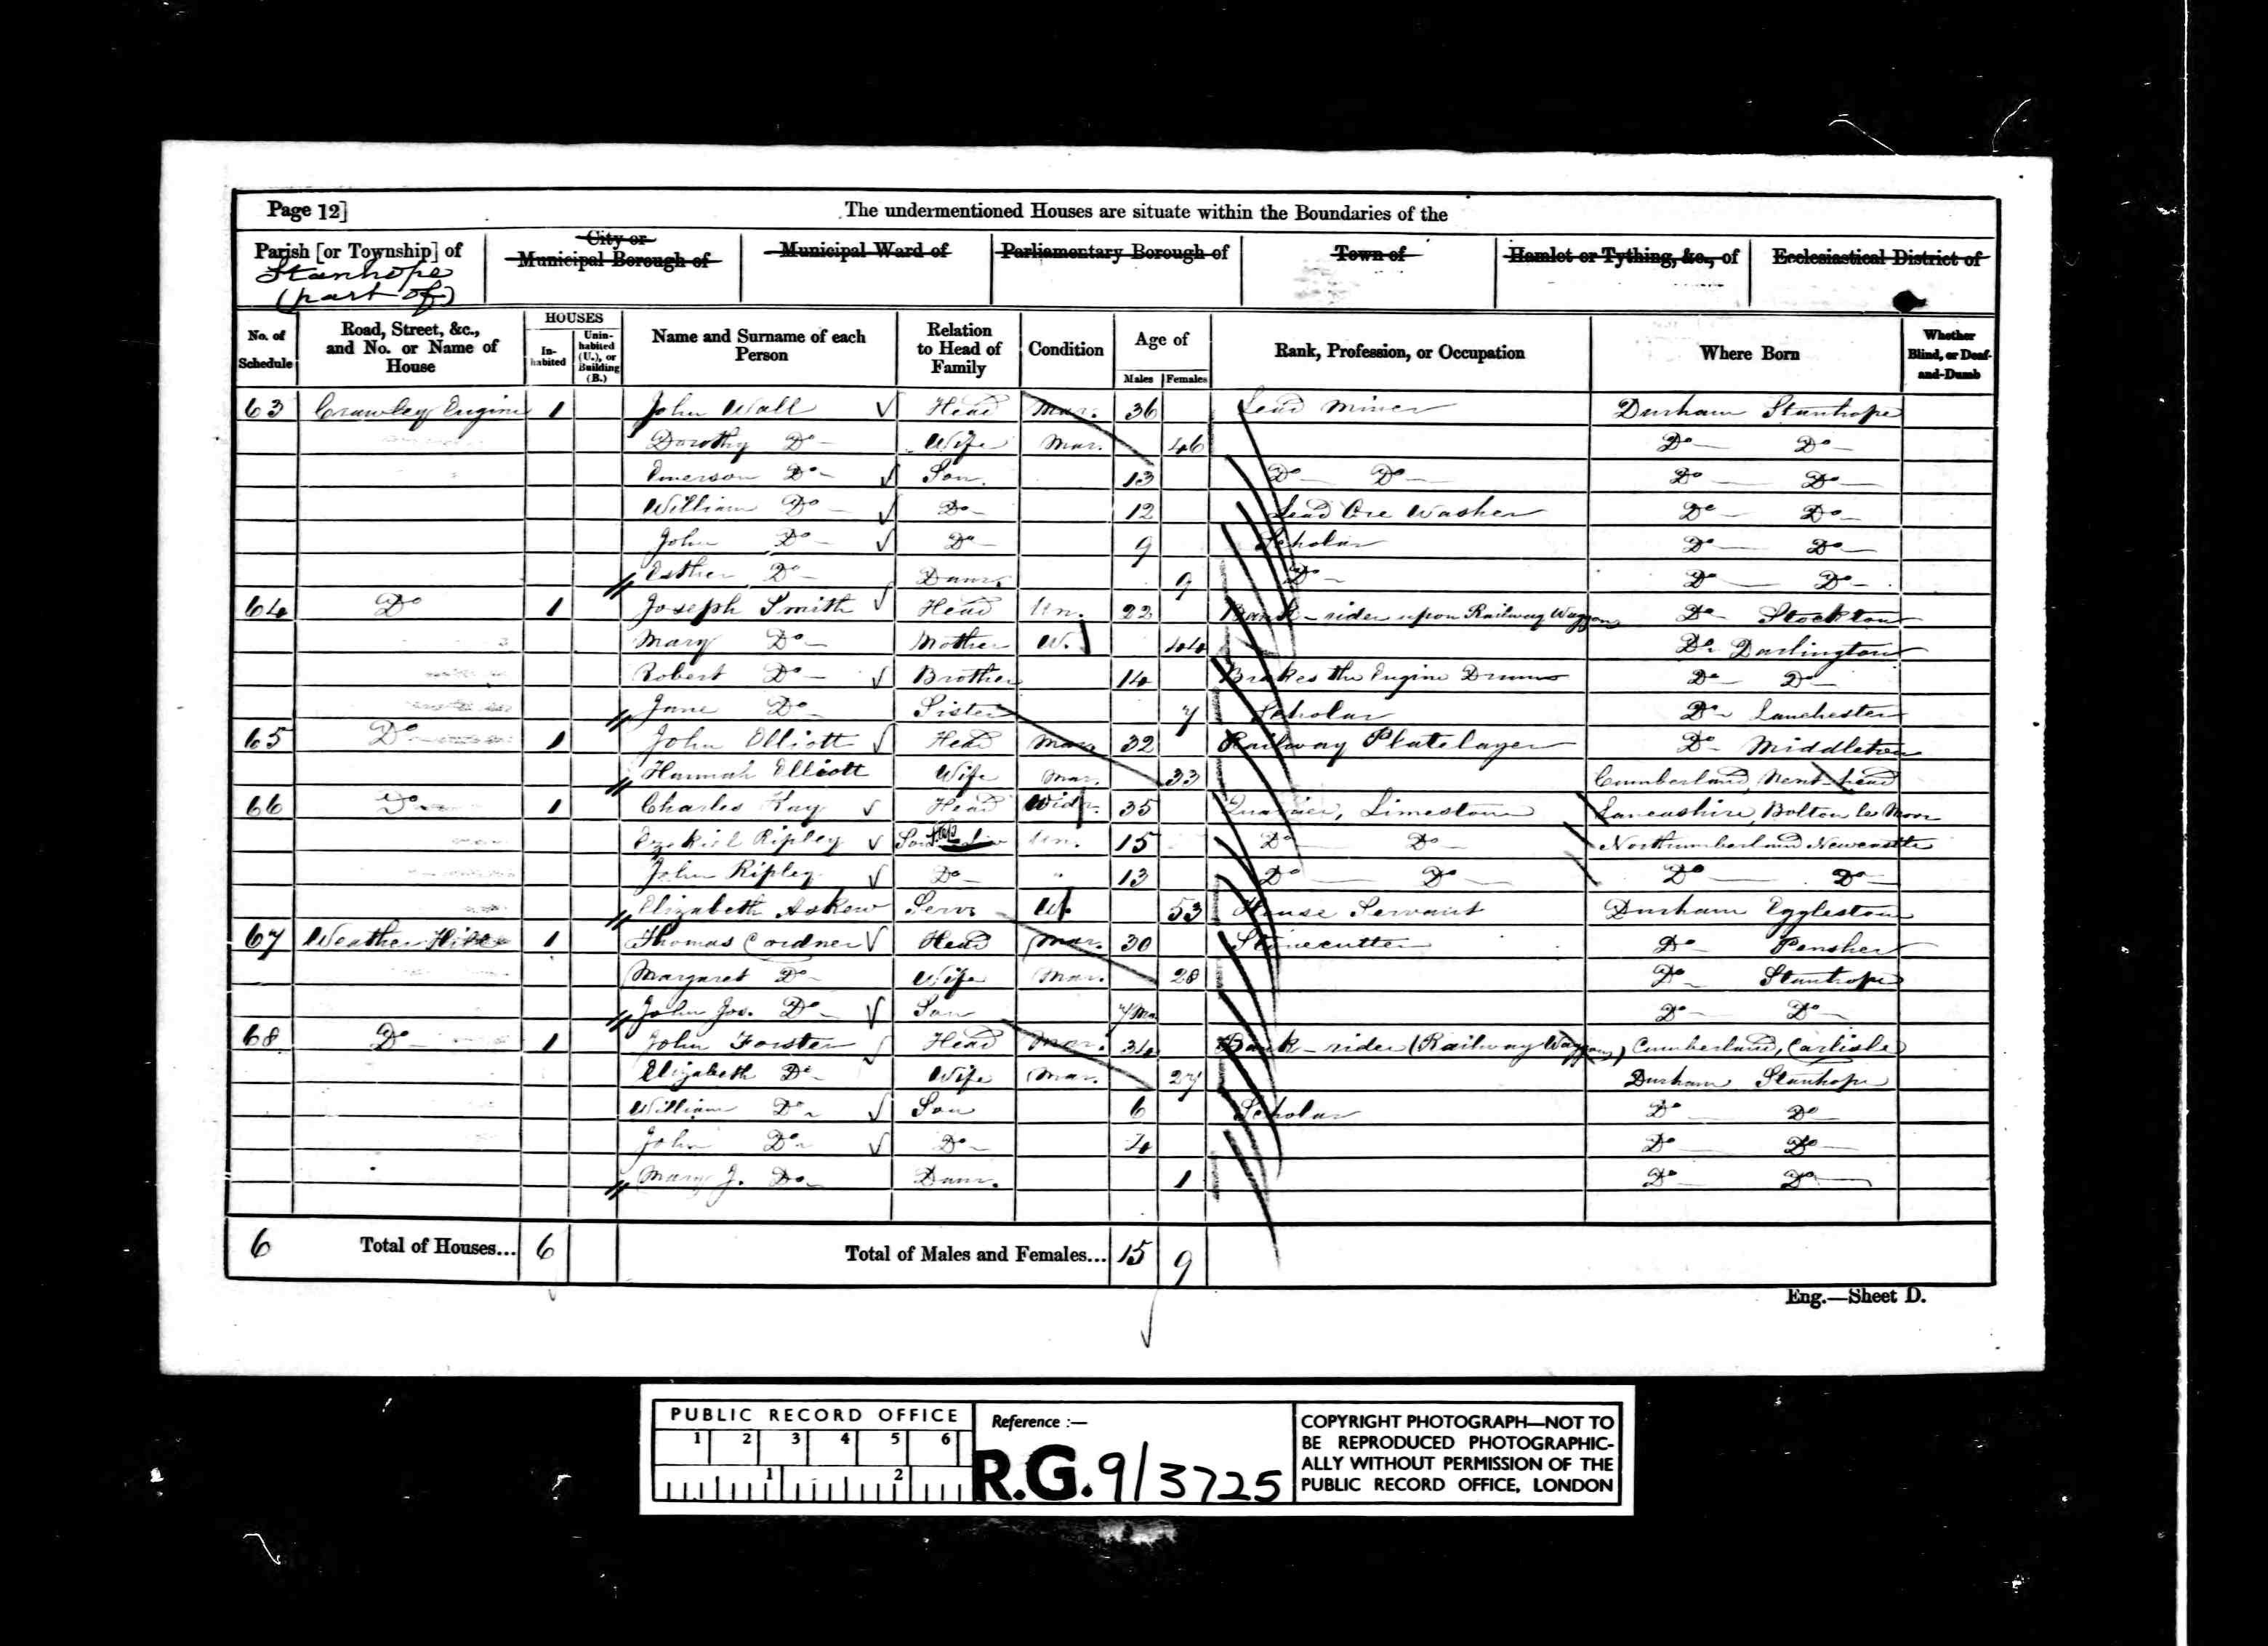 Page 12] The undermentioned Houses are situate within the Boundaries of the
Parish [or Township] of City or Municipal Borough of Municipal Ward of Parliamentary Borough of Town of Hamlet or Tything, &c., of Ecclesiastical District of
Stanhope
(part of)
No. of Schedule Road, Street, &c., and No. or Name of House HOUSES In-habited Unin-habited (U.), or Building (B.) Name and Surname of each Person Relation to Head of Family Condition Age of Males Females Rank, Profession, or Occupation Where Born Whether Blind, or Deaf-and-Dumb
63 Crawley Engine 1 John Wall Head Mar. 36 Lead Miner Durham Stanhope
Dorothy Do Wife Mar. 46 Do Do
Emerson Do Son. 13 Do Do Do Do
William Do Do 12 Lead Ore Washer Do Do
John Do Do 9 Scholar Do Do
Esther Do Daur. 9 Do Do Do
64 Do 1 Joseph Smith Head Un. 22 Bank-rider upon Railway Waggons Do Stockton
Mary Do Mother W. 44 Do Darlington
Robert Do Brother 14 Brakes the Engine Drums Do Do
Jane Do Sister 7 Scholar Do Lanchester
65 Do 1 John Elliott Head Mar. 32 Railway Platelayer Do Middleton
Hannah Elliott Wife Mar. 33 Cumberland, Nent-head
66 Do 1 Charles Kay Head Widr. 35 Quarrier, Limestone Lancashire, Bolton le Moor
Ezekiel Ripley Step Un. 15 Do Do Northumberland Newcastle
John Ripley Do " 13 Do Do Do Do
Elizabeth Askew Serv. 53 House Servant Durham Eggleston
67 Weather Hill 1 Thomas Cordner Head Mar. 30 Stonecutter Do Pensher
Margaret Do Wife Mar. 28 Do Stanhope
John Jos. Do Son 7 Mo Do Do
68 Do 1 John Forster Head Mar. 34 Bank-rider (Railway Waggons) Cumberland, Carlisle
Elizabeth Do Wife Mar. 27 Durham Stanhope
William Do Son 6 Scholar Do Do
John Do Do 4 Do Do
Mary J. Do Daur. 1 Do Do
6 Total of Houses... 6 Total of Males and Females... 15 9
Eng.—Sheet D.
PUBLIC RECORD OFFICE
1 2 3 4 5 6
1 2
Reference :—
R.G. 9/3725
COPYRIGHT PHOTOGRAPH—NOT TO
BE REPRODUCED PHOTOGRAPHIC-
ALLY WITHOUT PERMISSION OF THE
PUBLIC RECORD OFFICE, LONDON